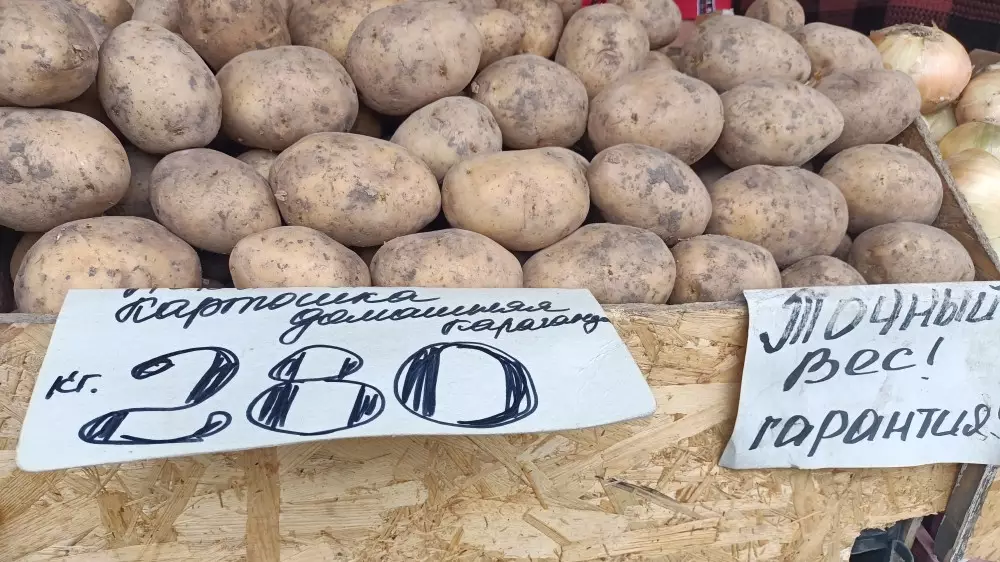 Картошка
домашняя
Караганда
кг. 280
Точный
Вес!
гарантия